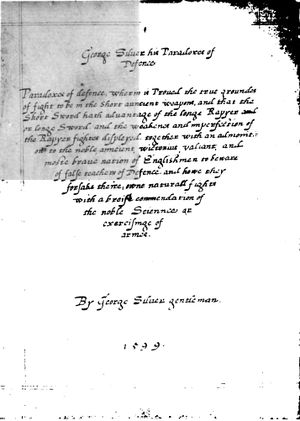 George Silver his Paradoxes of
Defence
Paradoxes of defence, wherin is Proved the true groundes
of fight to be in the short auncient weapons, and that the
Short Sword hath advantage of the longe Rapyer and
or longe Sword. and the weaknes and imperfection of
the Rapyer fightes displayed. together with an admoni:
on to the noble, auncient, victorius, valiant, and
moste brave nation of Englishmen to beware
of false teachers of Defence. and howe they
forsake theire, owne naturall fights
with a breife commendation of
the noble Sciennce, or
exercisinge of
armes.
By George Silver gentleman.
1599.